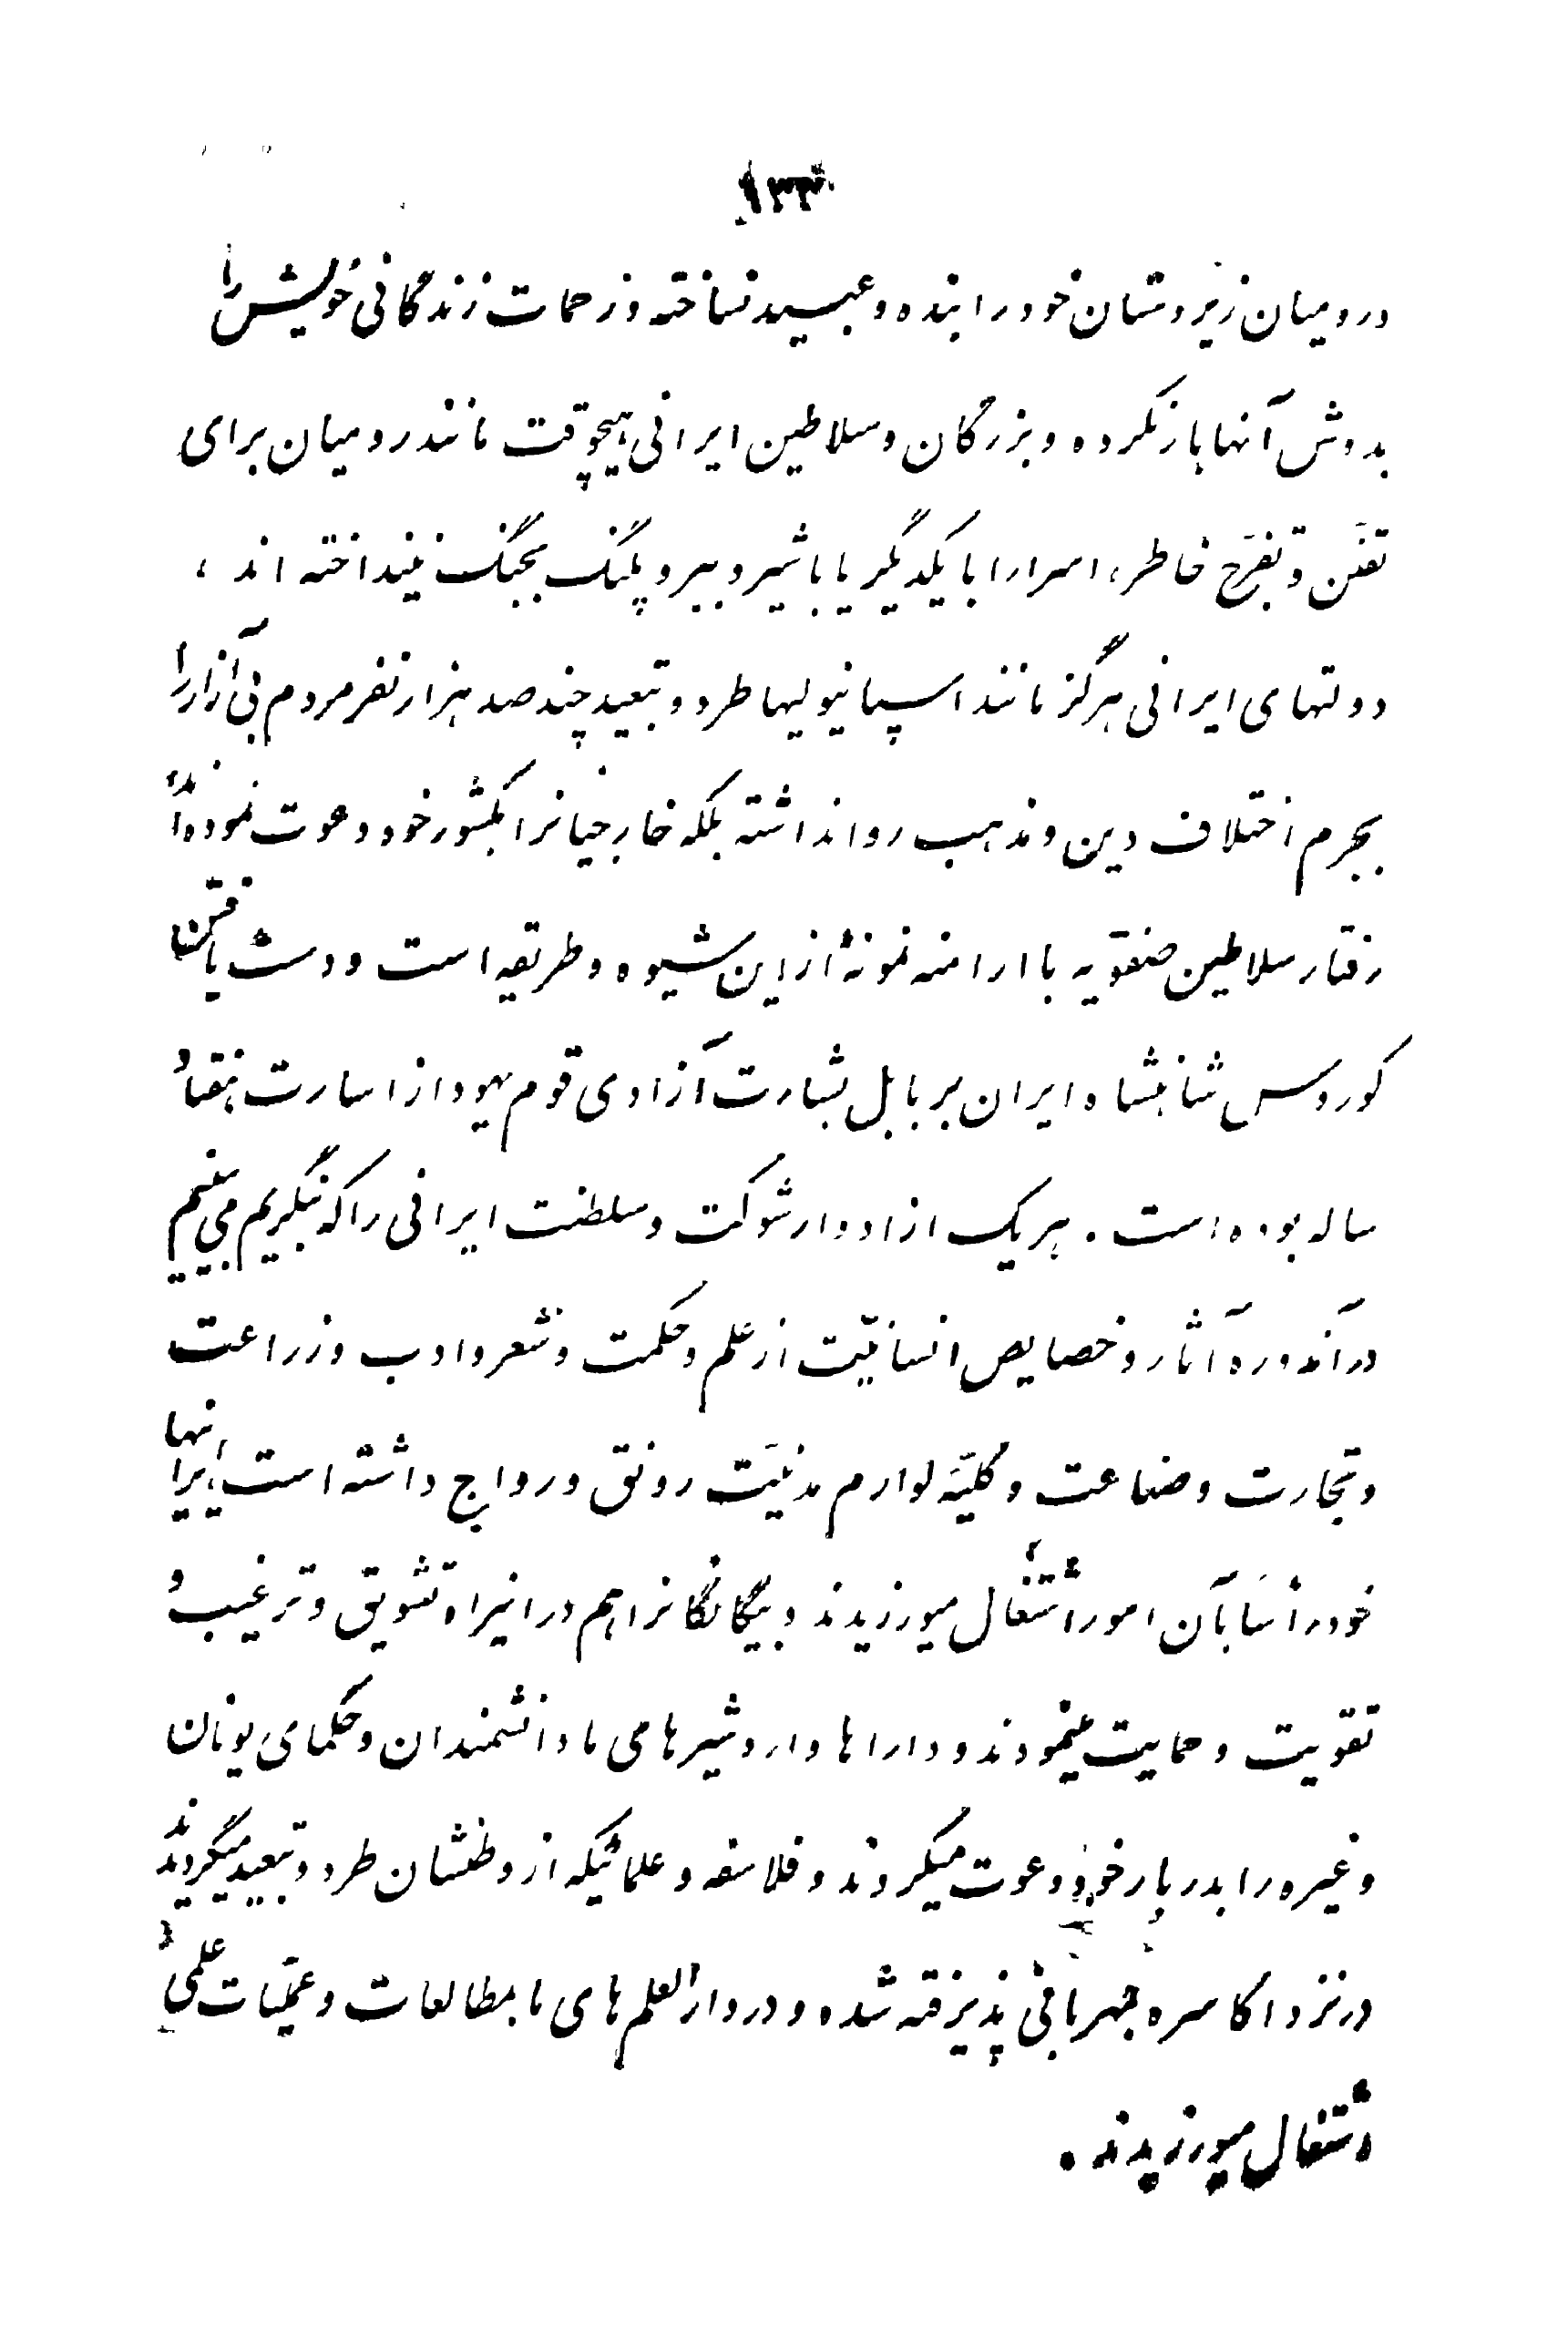 ۱۳۳
و رومیان زیردستان خود را بنده و عبید نساخته و زحمات زندگانی خویش را
بدوش آنها بار نکرده و بزرگان و سلاطین ایرانی هیچوقت مانند رومیان برای
تفنّن و تفرّح خاطر، اسرا را با یکدیگر یا با شیر و ببر و پلنگ بجنگ نینداخته اند ،
دولتهای ایرانی هرگز مانند اسپانیولیها طرد و تبعید چند صد هزار نفر مردم بی آزار را
بجرم اختلاف دین و مذهب روا نداشته بلکه خارجیانرا بکشور خود دعوت نموده‌اند
رفتار سلاطین صفویه با ارامنه نمونهٔ از این شیوه و طریقه است و دست یافتن
کوروس شاهنشاه ایران بر بابل بشارت آزادی قوم یهود از اسارت هفتاد
ساله بوده است . هر یک از ادوار شوکت و سلطنت ایرانی را که بنگریم می بینیم
در آندوره آثار و خصایص انسانیّت از علم و حکمت و شعر و ادب و زراعت
و تجارت و صناعت و کلیّه لوازم مدنیّت رونق و رواج داشته است، ایرانیها
خود رأسا بآن امور اشتغال میورزیدند و بیگانگانرا هم در اینراه تشویق و ترغیب و
تقویت و حمایت مینمودند و داراها و اردشیرهای ما دانشمندان و حکمای یونان
و غیره را بدربار خود دعوت میکردند و فلاسفه و علمائیکه از وطنشان طرد و تبعید میگردیدند
در نزد اکاسره بمهربانی پذیرفته شده و در دارالعلم های ما بمطالعات و عملیّات علمی
اشتغال میورزیدند .